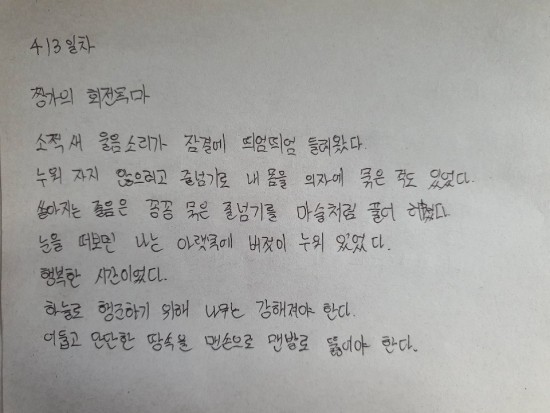 413일차
짱가의 회전목마
소쩍새 울음소리가 잠결에 띄엄띄엄 들려왔다.
누워 자지 않으려고 줄넘기로 내 몸을 의자에 묶은 적도 있었다.
쏟아지는 졸음은 꽁꽁 묶은 줄넘기를 마술처럼 풀어 헤쳤다
눈을 떠보면 나는 아랫목에 버젓이 누워 있었다.
행복한 시간이었다.
하늘로 행군하기 위해 나무는 강해져야 한다.
어둡고 단단한 땅속을 맨손으로 맨발로 뚫어야 한다.